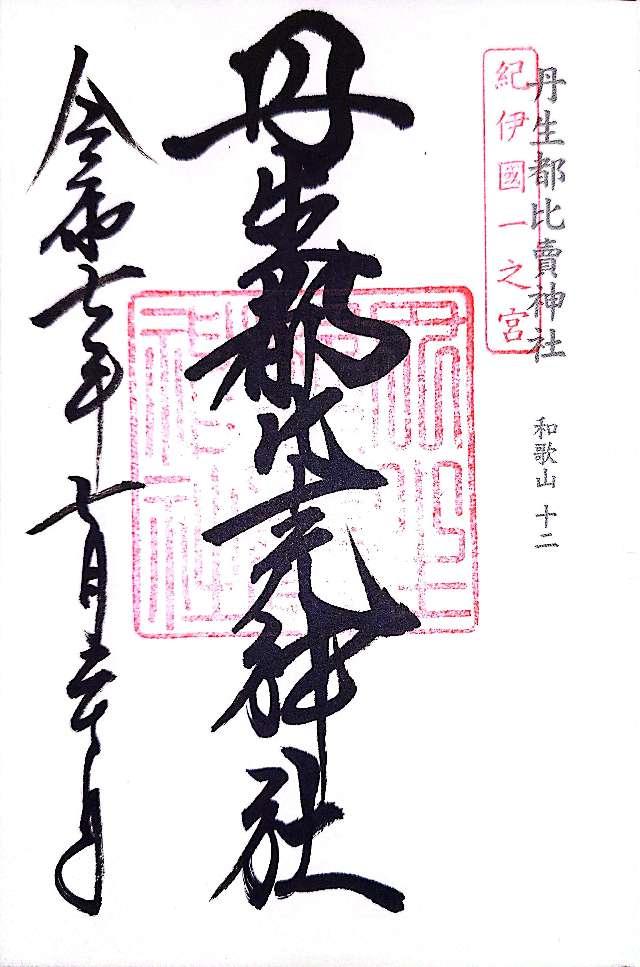 丹生都比賣神社 和歌山 十二
紀伊國一之宮
丹生都比売神社
令和七年七月三十日